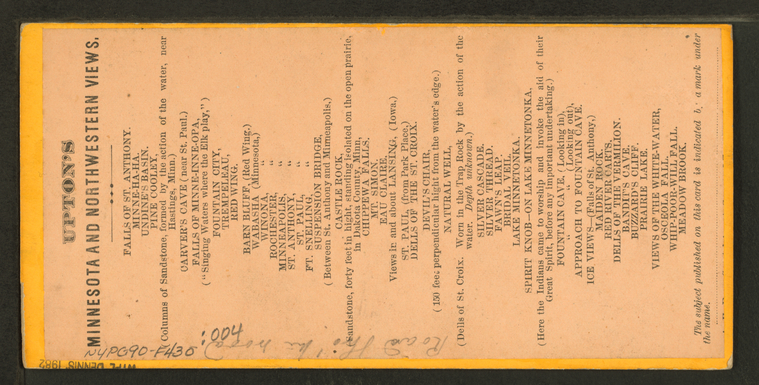 UPTON'S
MINNESOTA AND NORTHWESTERN VIEWS.
FALLS OF ST. ANTHONY.
MINNE-HA-HA.
UNKTE'S BASIN.
PHINNEY
POOBLEY.
(Columns of Sandstone, formed by the action of the water, near
Hastings, Minn.)
CARVER'S CAVE (near St. Paul.)
FALLS OF MINNE-INNE-OPA,
("Singing Waters where the Elk play,")
FOUNTAIN CITY,
TREMBLEAU,
RED WING.
BARN BLUFF, (Red Wing.)
WABASHA, (Minnesota,)
WINONA, "
ROCHESTER, "
MINNEAPOLIS, "
ST. ANTHONY, "
ST. PAUL, "
FT. SNELLING, "
SUSPENSION BRIDGE,
(Between St. Anthony and Minneapolis.)
CASTLE ROCK,
Sandstone, forty feet in hight, standing isolated on the open prairie,
in Dakota County, Minn,
CHIPPEWA FALLS,
MT. SIMON,
EAU CLAIRE,
Views in and about LANSING, (Iowa.)
ST. PAUL (from Park Place,)
DELLS OF THE ST. CROIX.
DEVIL'S CHAIR.
(150 feet perpendicular hight from the water's edge.)
NATURAL WELL.
(Dells of St. Croix. Worn in the Trap Rock by the action of the
water. Depth unknown.)
SILVER CASCADE.
SILVER THREAD.
FAWN'S LEAP.
BRIDAL VEIL.
LAKE MINNETONKA.
SPIRIT KNOB—ON LAKE MINNETONKA.
(Here the Indians came to worship and invoke the aid of their
Great Spirit, before any important undertaking.)
FOUNTAIN CAVE, (Looking in),
" " (Looking out),
APPROACH TO FOUNTAIN CAVE.
ICE VIEWS—(Falls of St. Anthony.)
MAIDEN ROCK.
RED RIVER CARTS.
DELLS OF THE VERMILION.
BANDIT'S CAVE.
BUZZARD'S CLIFF.
PRAIRIE LAKE.
VIEWS OF THE WHITE-WATER,
OSCEOLA FALL,
WHIP-LASH FALL.
MEADOW BROOK.
The subject published on this card is indicated by a mark under
the name.
N4PG90-F430
400:
Road
DENNIS, 1982